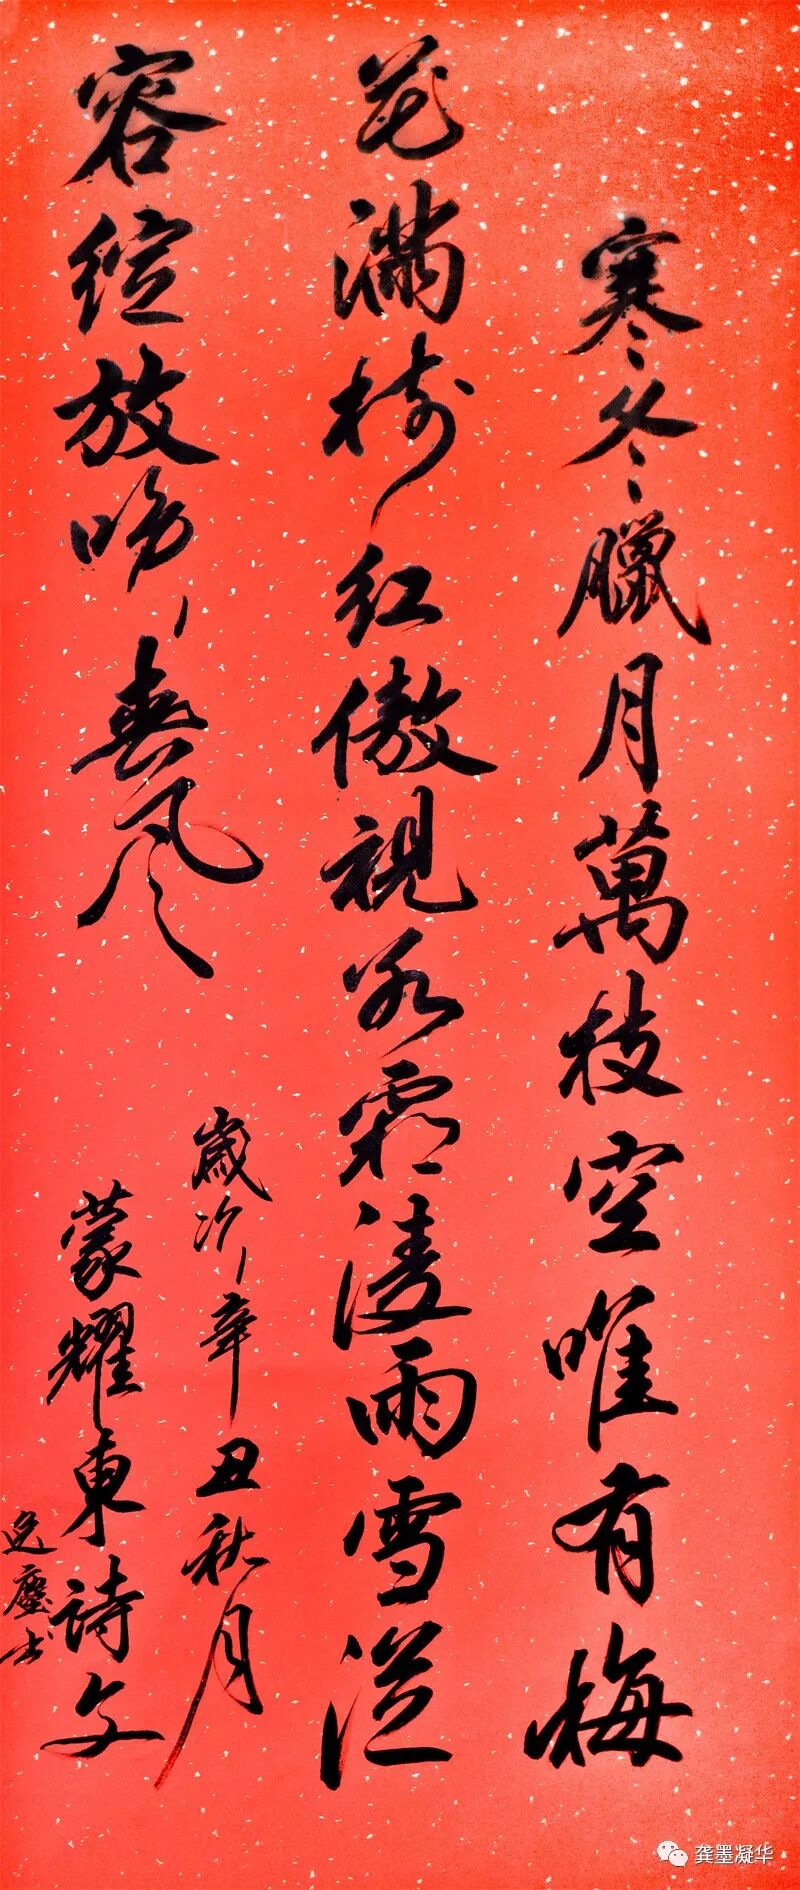 寒冬臘月萬枝空唯有梅
花滿樹紅傲視冰霜淩雨雪從
容綻放喚春風
歲次辛丑秋月
蒙耀東詩文
逸塵书
龚墨凝华